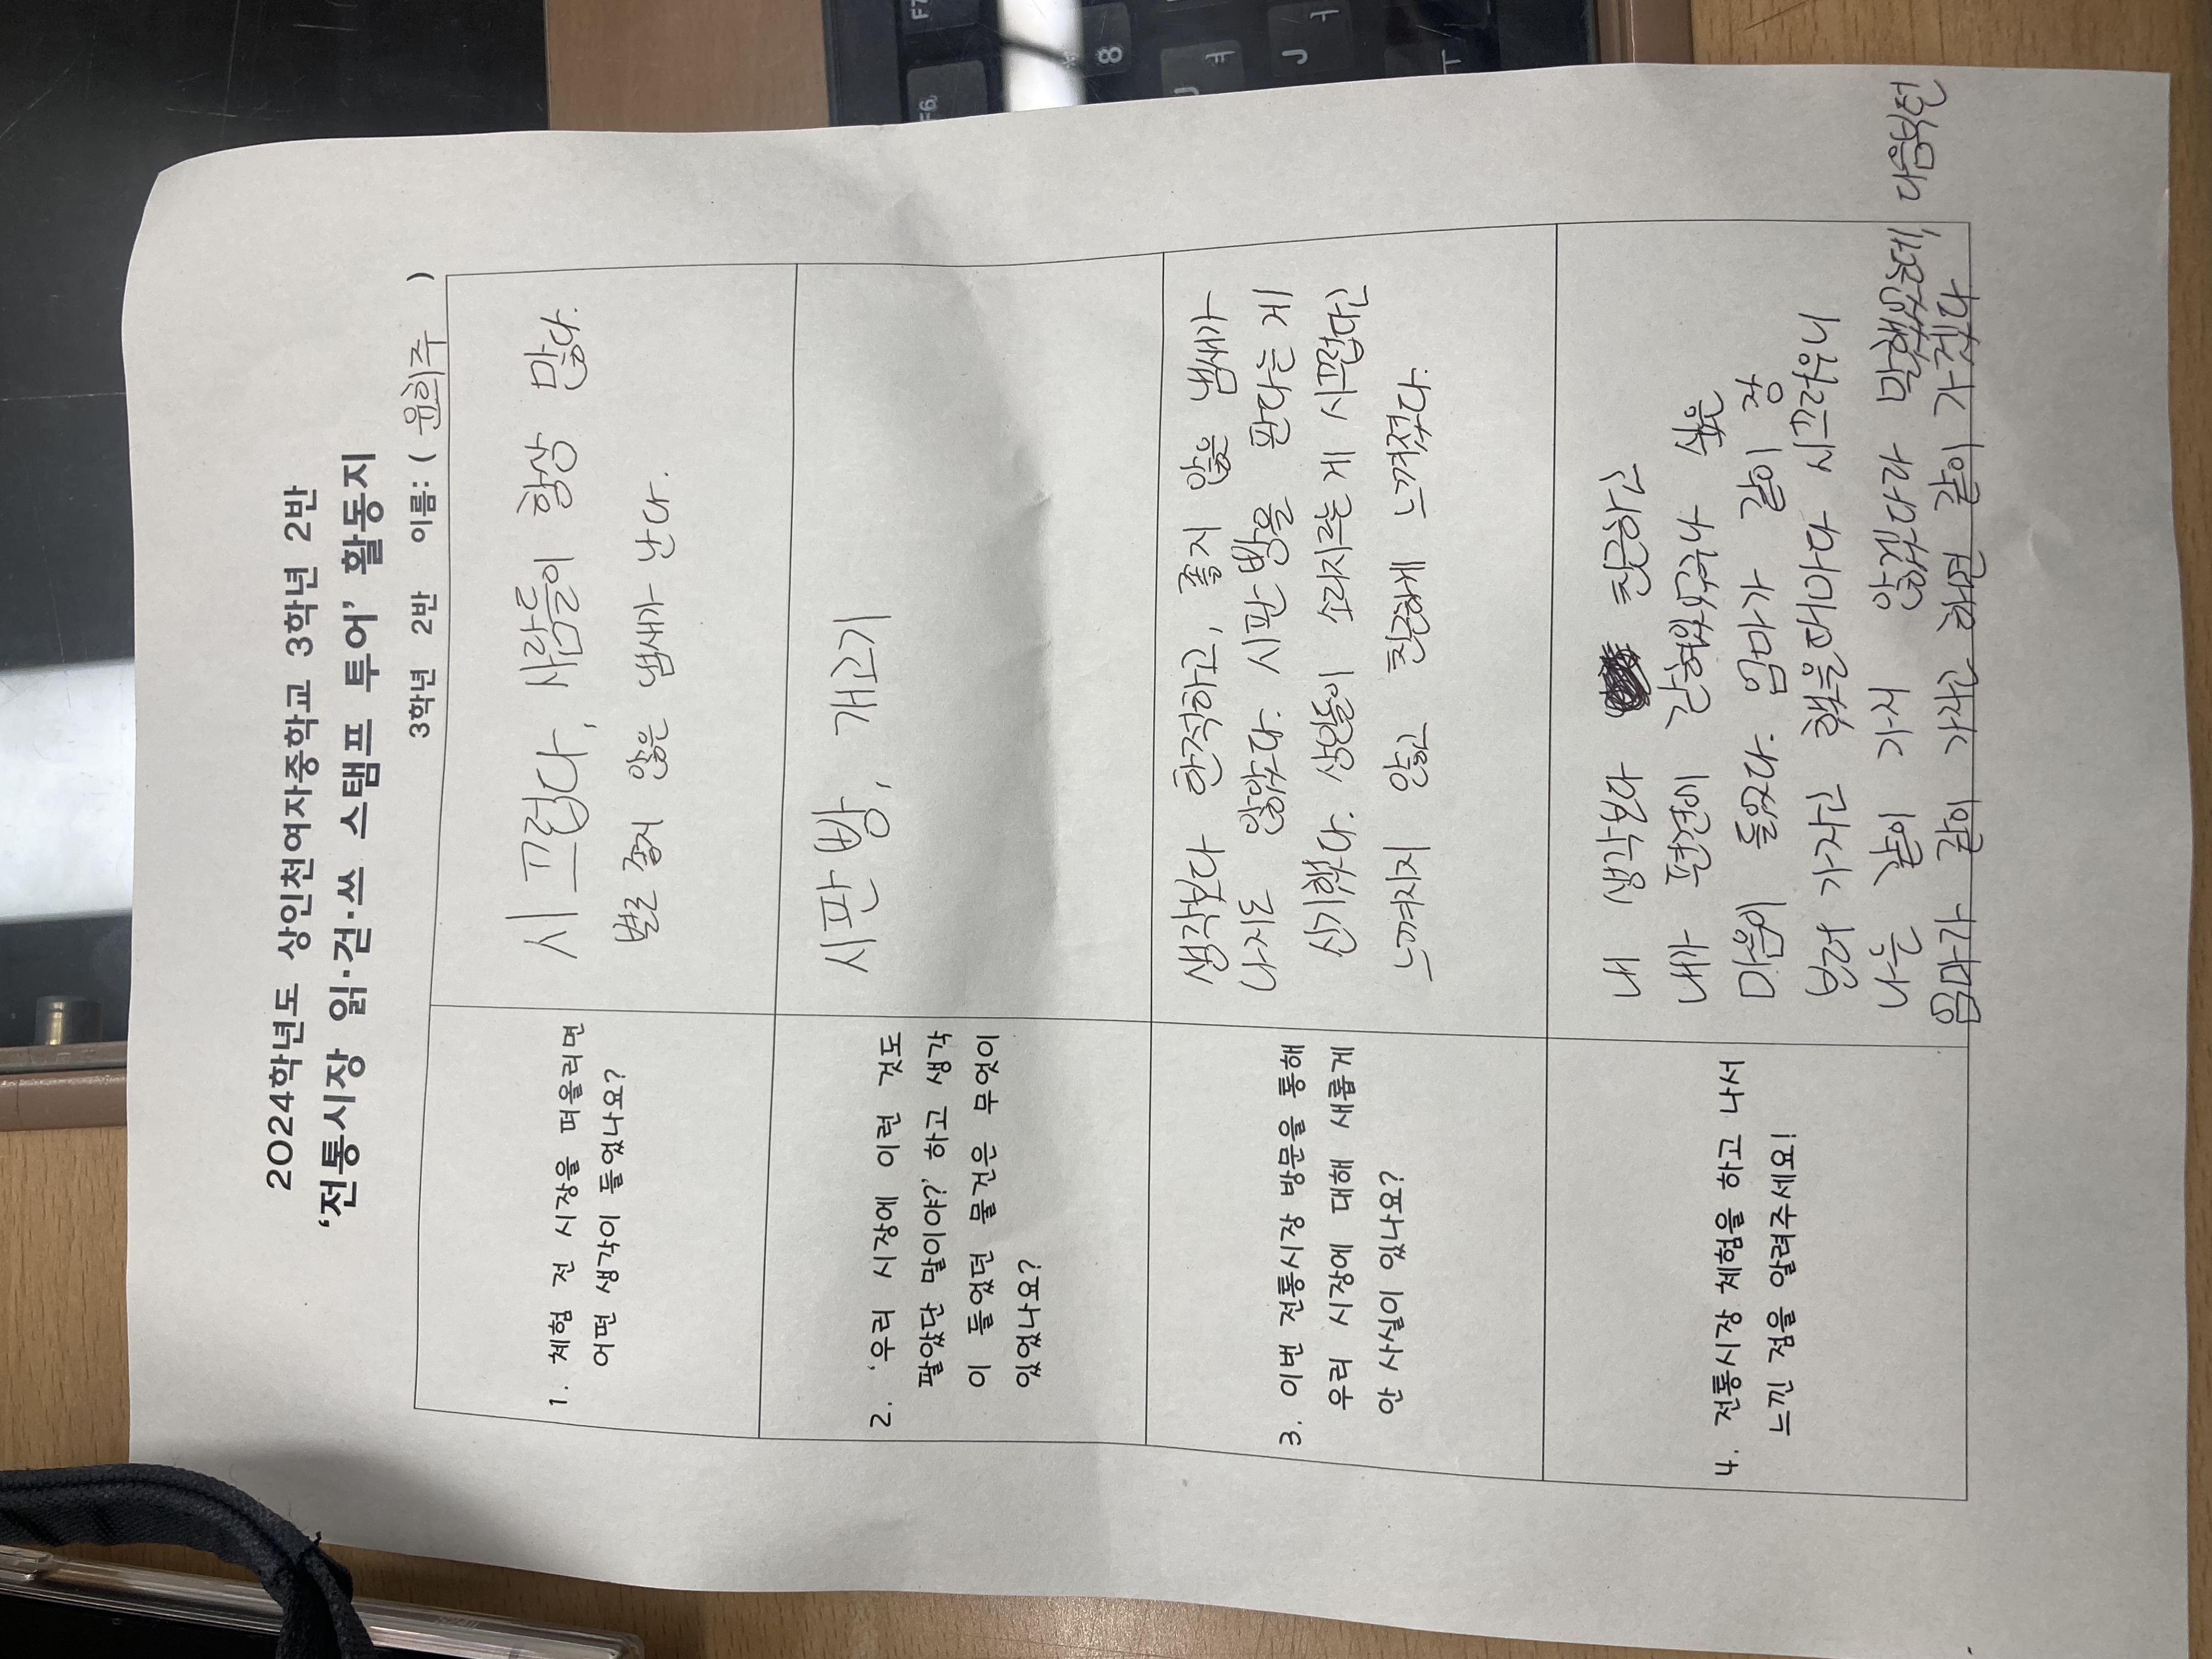 2024학년도 상인천여자중학교 3학년 2반
‘전통시장 읽·걷·쓰 스탬프 투어’ 활동지
3학년 2반 이름: ( 윤희주 )
1. 체험 전 시장을 떠올리면
어떤 생각이 들었나요?
시끄럽다, 사람들이 항상 많다.
별로 좋지 않은 냄새가 난다.
2. ‘우리 시장에 이런 것도
팔았단 말이야?’ 하고 생각
이 들었던 물건은 무엇이
있었나요?
시판 빵, 개고기
3. 이번 전통시장 방문을 통해
우리 시장에 대해 새롭게
안 사실이 있나요?
생각보다 한적하고, 좋지 않은 냄새가
나지도 않았다. 시판 빵을 판다는 게
신기했다. 상인들이 소리지르는 게 시끄럽단
느껴지지 않고 친근하게 느껴졌다.
4. 전통시장 체험을 하고 나서
느낀 점을 알려주세요!
내 생각보다 친근하고
내가 편견에 갇혀있었구나 싶은
마음이 들었다. 엄마가 같이 장
보러 가자고 했을때마다 시끄러우니
나는 같이 가지 않겠다라 말했었는데, 다음부턴
엄마가 같이 가자고 하면 같이 가겠다
F7
F6
8
ㅕ
J
ㅓ
ㅜ